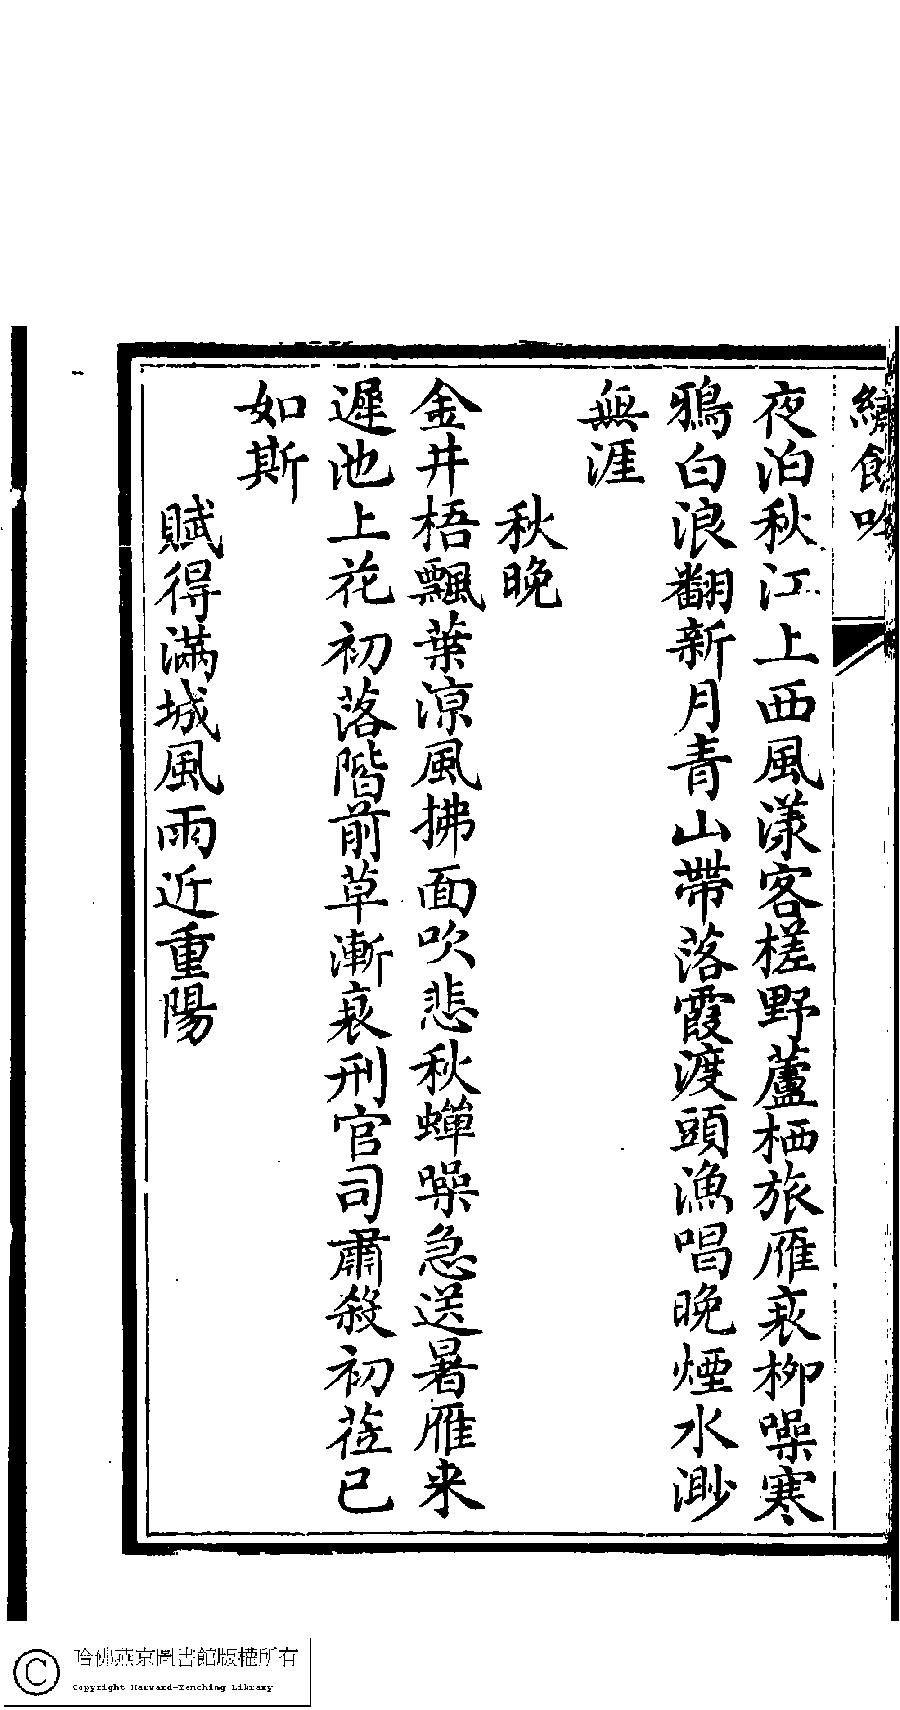 繡餘吟
夜泊秋江上西風漾客槎野蘆栖旅雁衰柳噪寒
鴉白浪翻新月青山帶落霞渡頭漁唱晚煙水渺
無涯
秋晚
金井梧飄葉涼風拂面吹悲秋蟬噪急送暑雁来
遲池上花初落階前草漸衰刑官司肅殺初蒞已
如斯
賦得滿城風雨近重陽
哈佛燕京圖書館版權所有
Copyright Harvard-Yenching Library
C